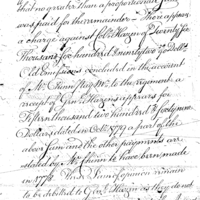 had no greater than a proportionate
was paid for the remainder — There appears
a charge against Genl. Hazen of Twenty five
Thousand five hundred & ninety two Doll.
Old Emissions concluded in the account
of Mr. Chinn Regt. Pay Mr. to the regiment a
receipt of Genl. Hazens appears for
Fifteen thousand two hundred &
Dollars dated in Octr. 1779 a part of the
above sum and the other payments are
stated by Mr. Chinn to have been made
in 1778. These Sums I opinion remain
to be debited to Genl. Hazen as they do not